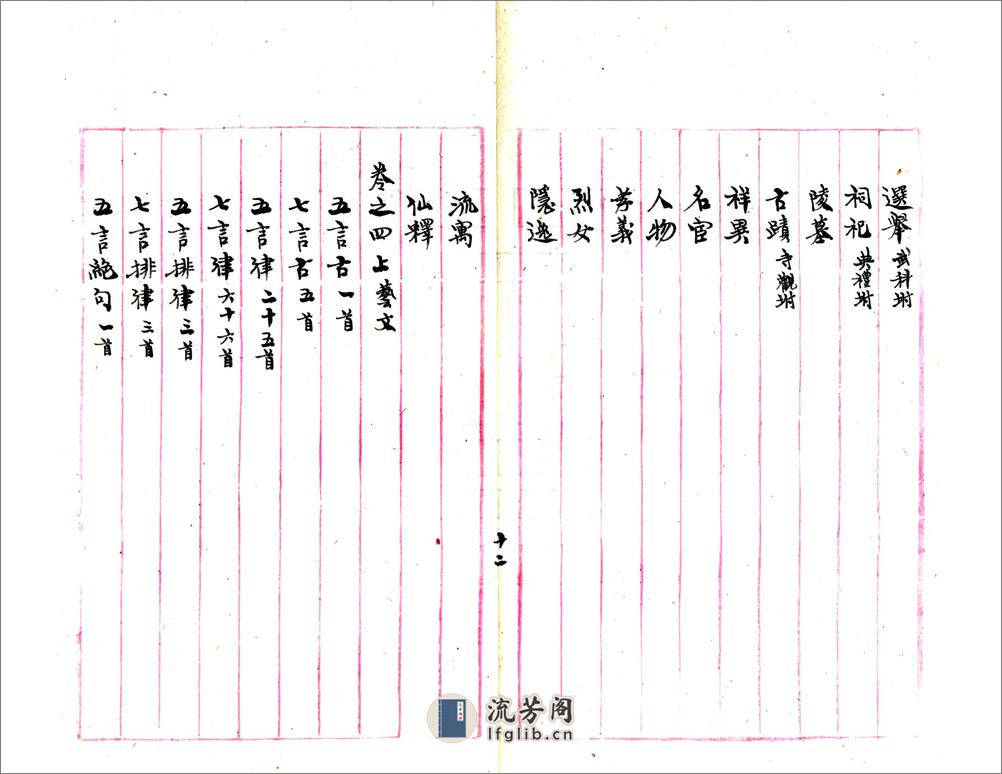 選舉 武科坿
祠祀 典禮坿
陵墓
古蹟 寺觀坿
祥異
名宦
人物
孝義
烈女
隱逸
十二
流寓
仙釋
卷之四上藝文
五言古 一首
七言古 五首
五言律 二十五首
七言律 六十六首
五言排律 三首
七言排律 三首
五言絕句 一首
流芳阁
lfglib.cn